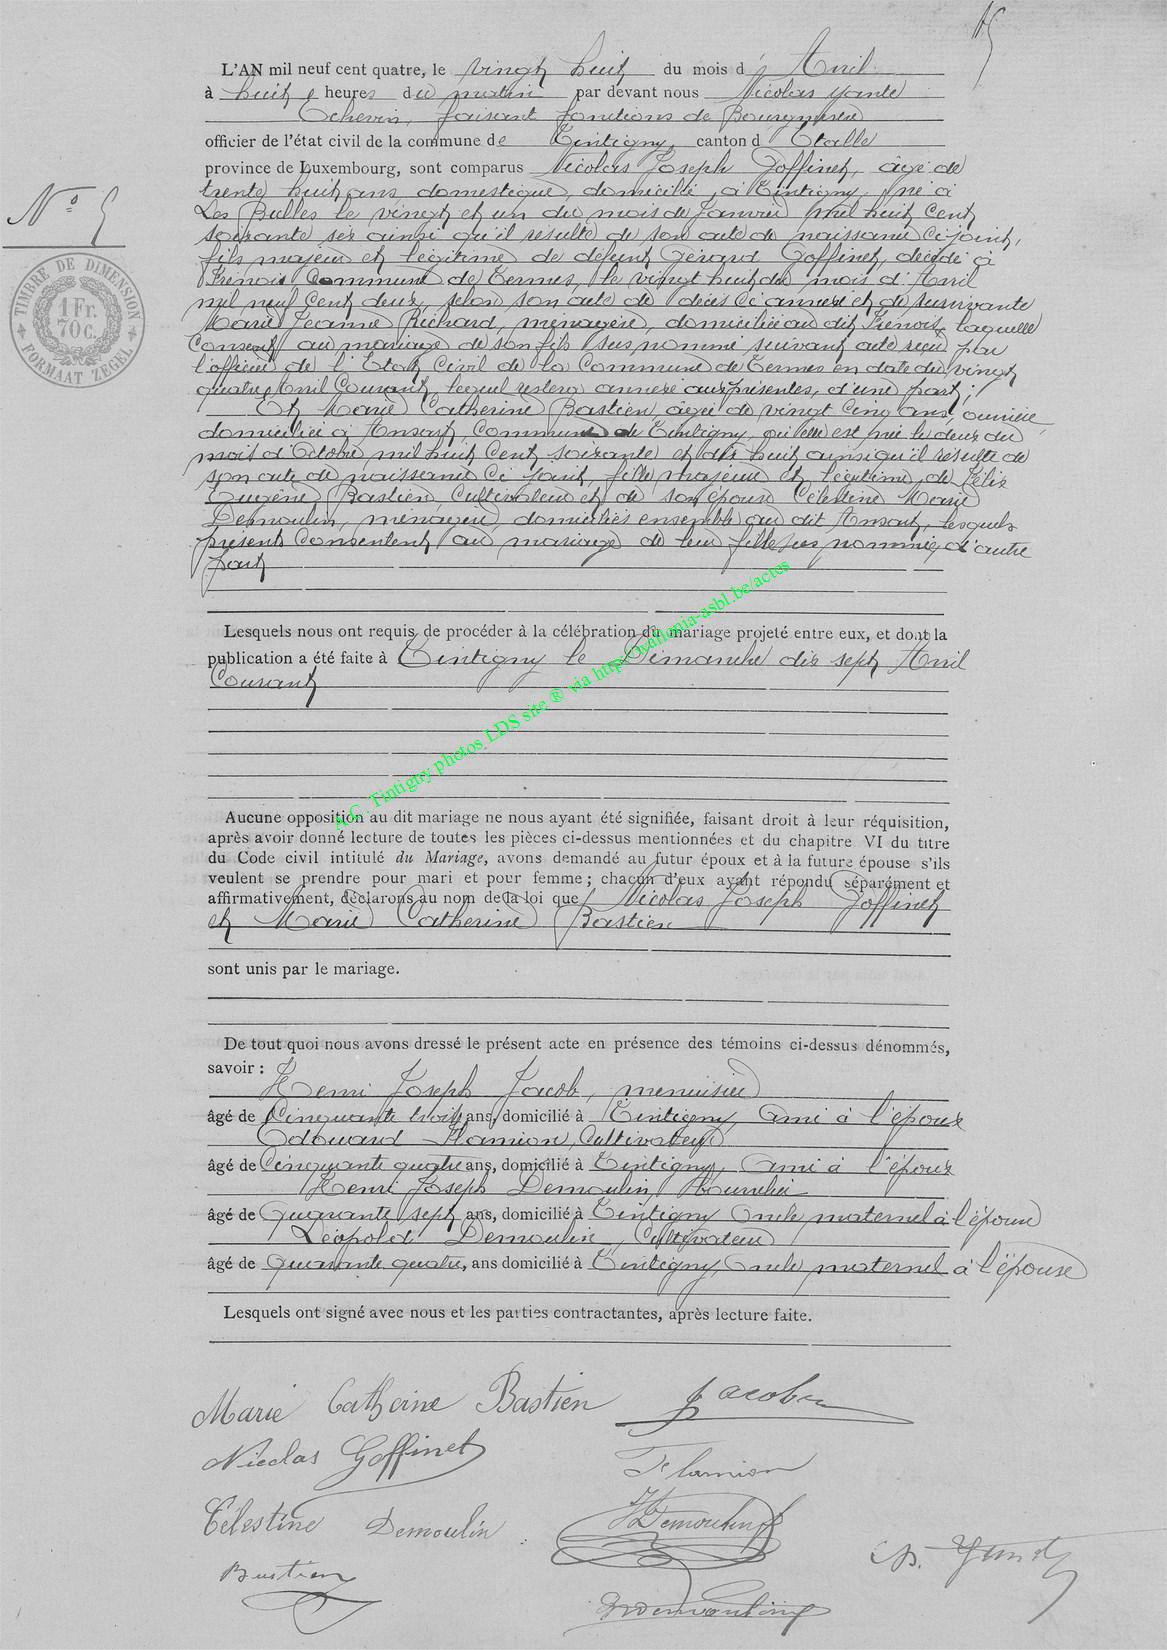 15
L'AN mil neuf cent quatre, le vingt huit du mois d' Avril
à huit heures du matin par devant nous Nicolas Yante
Echevin, faisant fonctions de Bourgmestre
officier de l'état civil de la commune de Tintigny, canton d' Etalle
province de Luxembourg, sont comparus Nicolas Joseph Goffinet, âgé de
trente huit ans domestique, domicilié à Tintigny, né à
Les Bulles le vingt et un du mois de Janvier mil huit Cent
soixante six ainsi qu'il résulte de son acte de naissance ci-joint,
fils majeur et légitime de défunt Gérard Goffinet, décédé à
Frenois Commune de Termes, le vingt huit du mois d'Avril
mil neuf Cent deux, selon son acte de décès ci annexé et de survivante
Marie Jeanne Richard, ménagère, domiciliée au dit Frenois, laquelle
Consent au mariage de son fils sus nommé suivant acte reçu par
l'officier de l'Etat Civil de la Commune de Termes en date du vingt
quatre Avril Courant, lequel restera annexé aux présentes, d'une part;
Et Marie Catherine Bastien, âgée de vingt Cinq ans, ouvrière,
domiciliée à Ansart, Commune de Tintigny, où elle est née le deux du
mois d'Octobre mil huit Cent soixante et dix huit ainsi qu'il résulte de
son acte de naissance Ci joint, fille majeure et légitime de Félix
Eugène Bastien, Cultivateur et de son épouse Célestine Marie
Demoulin, ménagère, domiciliés ensemble au dit Ansart, lesquels
présents Consentent au mariage de leur fille sus nommée, d'autre
part
N° 5
TIMBRE DE DIMENSION
1 Fr.
70 c.
FORMAAT ZEGEL
Lesquels nous ont requis de procéder à la célébration du mariage projeté entre eux, et dont la
publication a été faite à Tintigny le Dimanche dix sept Avril
Courant
A.C. Tintigny photos LDS site ® via http://wallonia-asbl.be/actes
Aucune opposition au dit mariage ne nous ayant été signifiée, faisant droit à leur réquisition,
après avoir donné lecture de toutes les pièces ci-dessus mentionnées et du chapitre VI du titre
du Code civil intitulé du Mariage, avons demandé au futur époux et à la future épouse s'ils
veulent se prendre pour mari et pour femme ; chacun d'eux ayant répondu séparément et
affirmativement, déclarons au nom de la loi que Nicolas Joseph Goffinet
et Marie Catherine Bastien
sont unis par le mariage.
De tout quoi nous avons dressé le présent acte en présence des témoins ci-dessus dénommés,
savoir :
Henri Joseph Jacob, menuisier
âgé de Cinquante trois ans, domicilié à Tintigny, Ami à l'époux
Edouard Flamion, Cultivateur
âgé de Cinquante quatre ans, domicilié à Tintigny, Ami à l'époux
Henri Joseph Demoulin, bourrelier
âgé de Quarante sept ans, domicilié à Tintigny Oncle maternel à l'épouse
Léopold Demoulin, Cultivateur
âgé de Quarante quatre, ans domicilié à Tintigny, Oncle maternel à l'épouse
Lesquels ont signé avec nous et les parties contractantes, après lecture faite.
Marie Catherine Bastien
Jacob
Nicolas Goffinet
Flamion
Célestine Demoulin
HDemoulin
Bastien
Demoulin
N. Yante